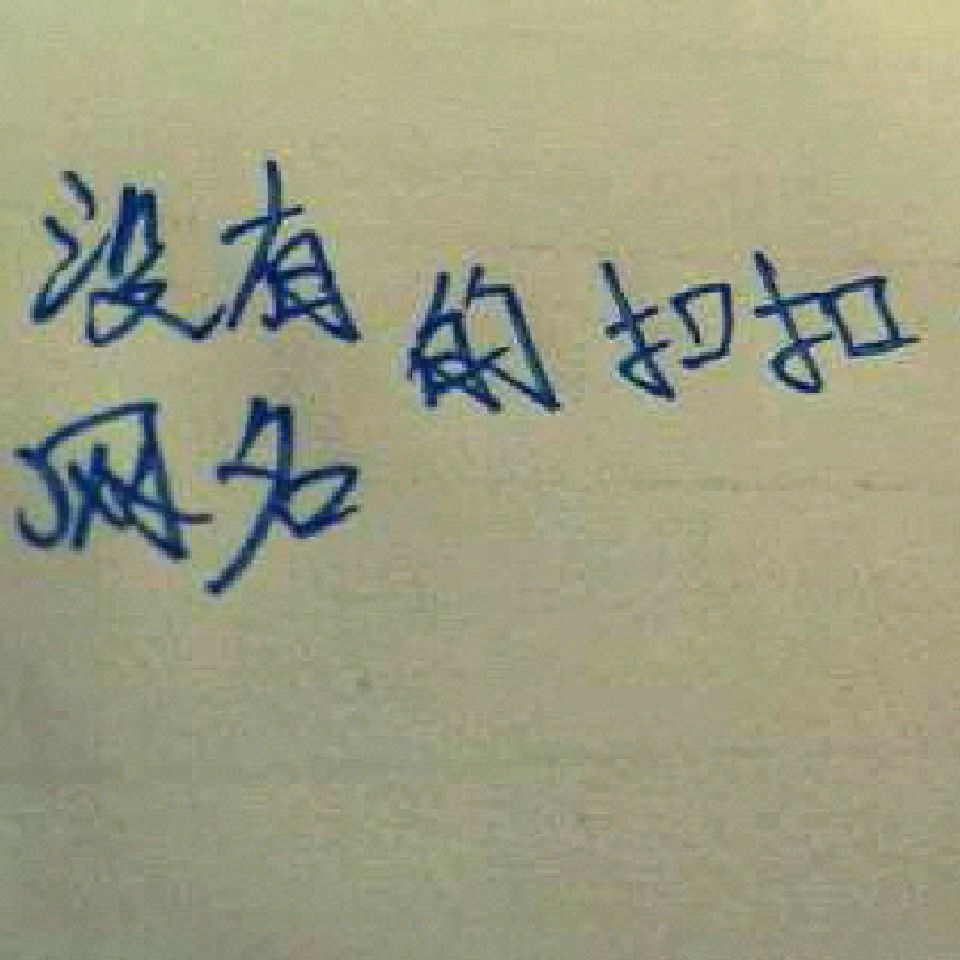 没有的扣扣
网名